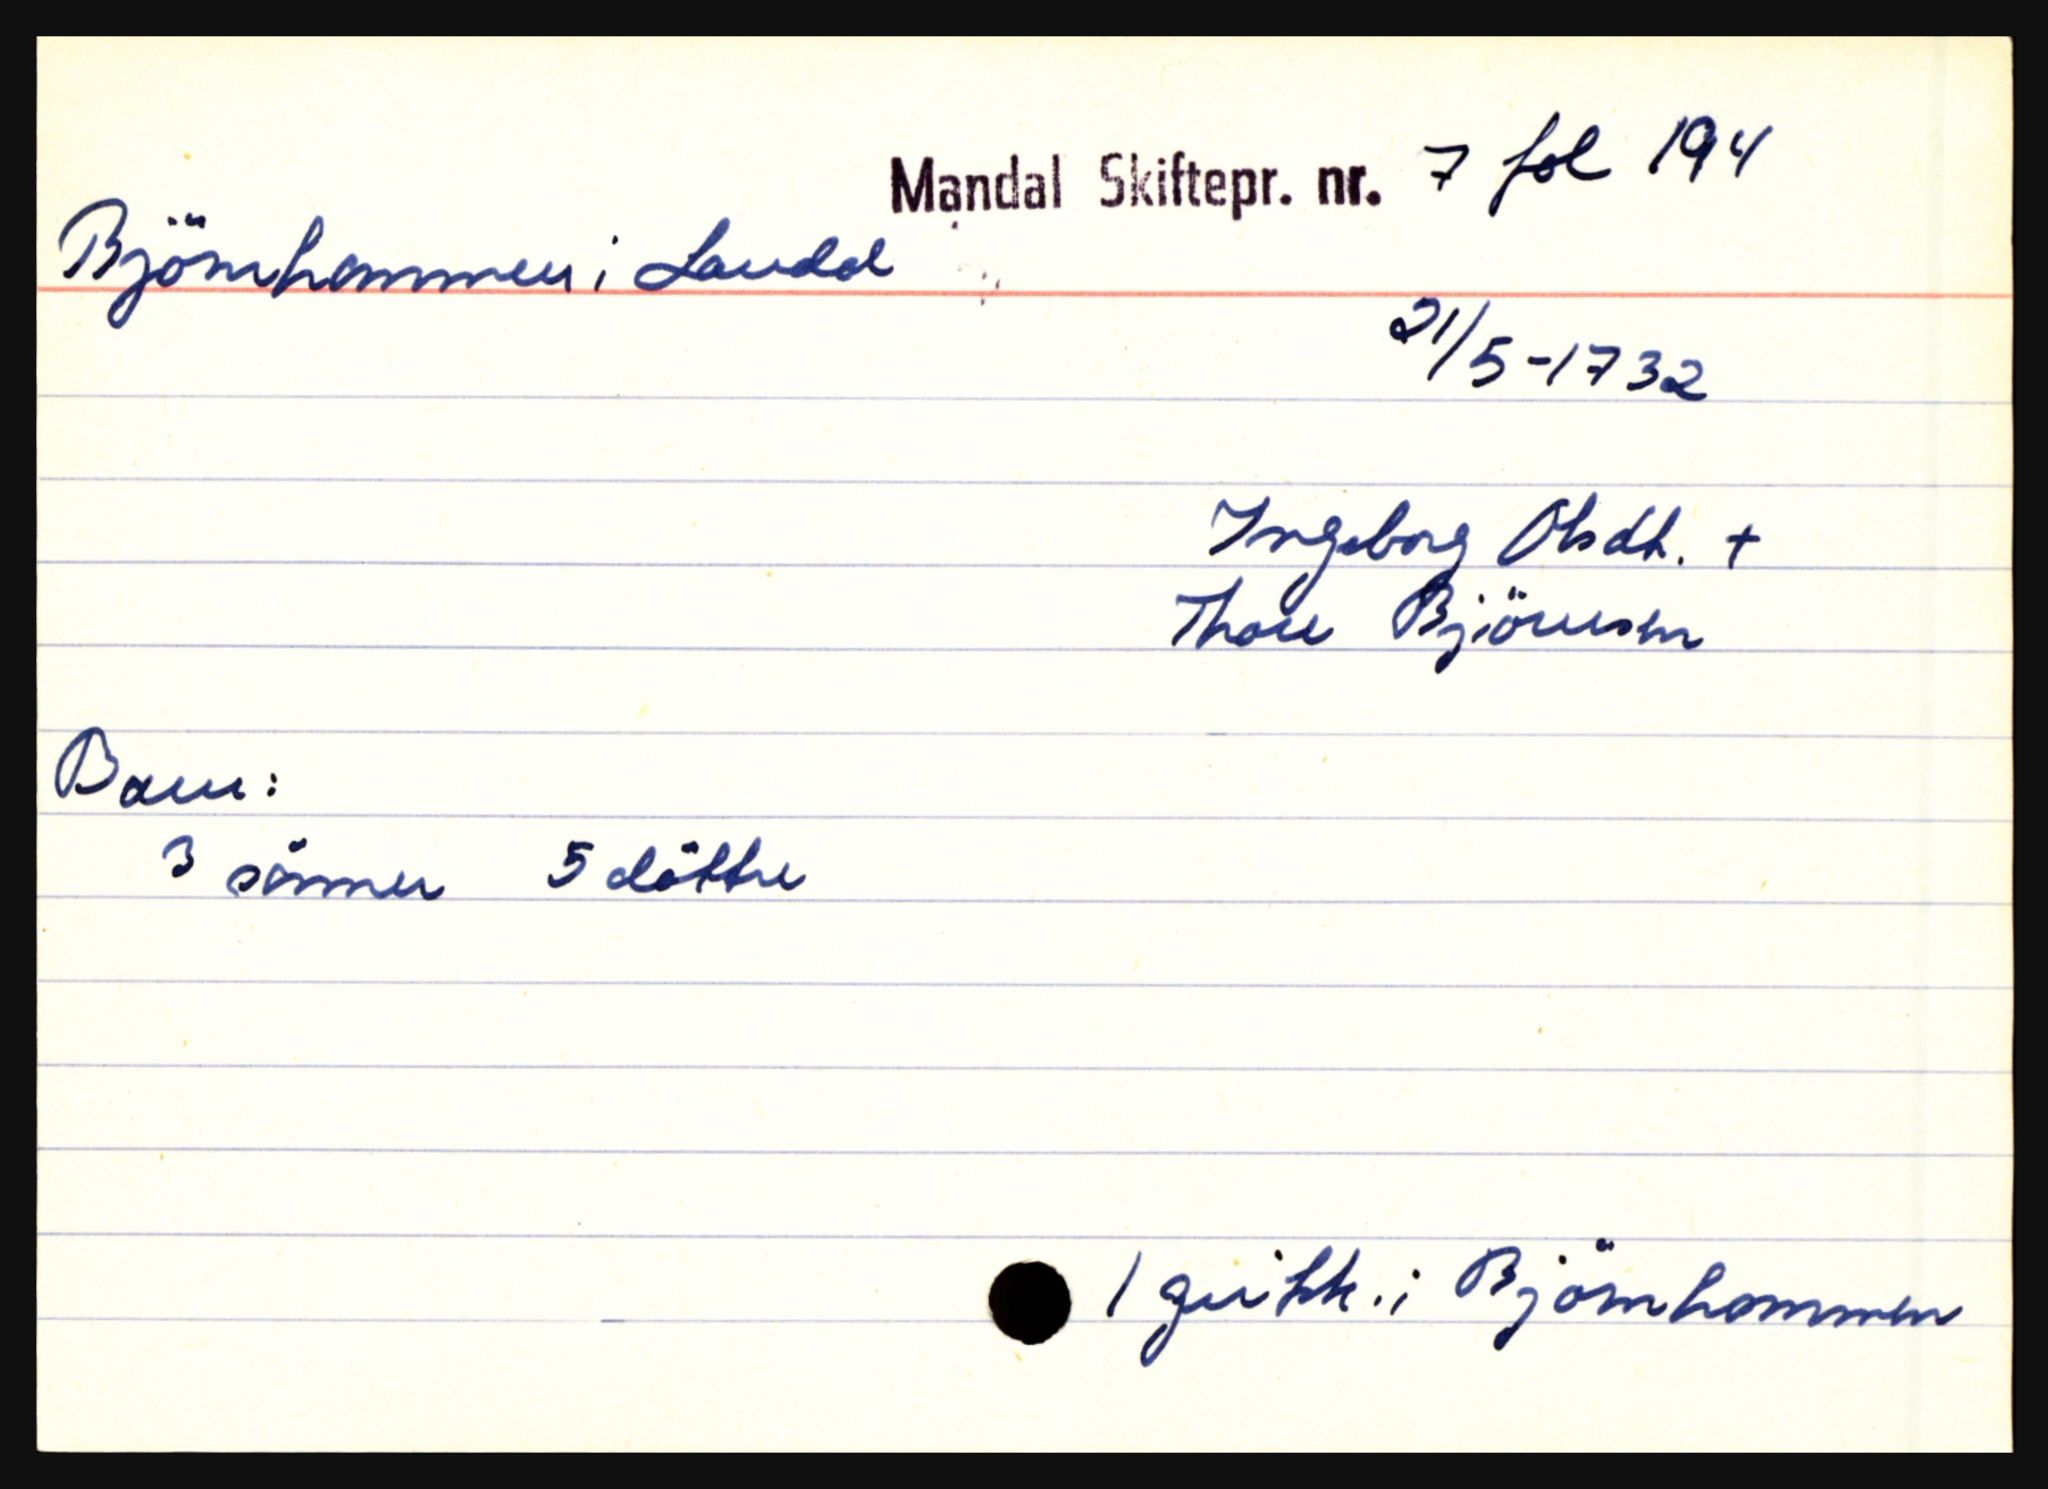 Mandal Skiftepr. nr. 7 fol 194
Björnhammen i Laudal
21/5-1732
Ingeborg Olsdt. +
Thore Bjiörnsen
Barn:
3 sönner 5 döttre
1 gr i hk. i Björnhammen